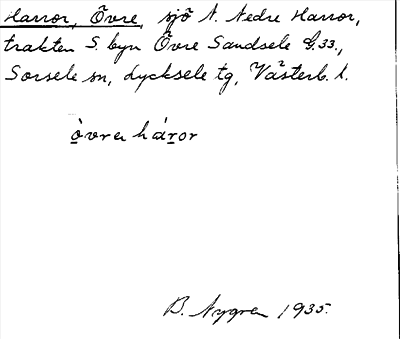 Harror, Övre, sjö N. Nedre Harror,
trakten S. byn Övre Sandsele G.33.,
Sorsele sn, Lycksele tg, Västerb. l.
òvrer háror
B. Nygren 1935.